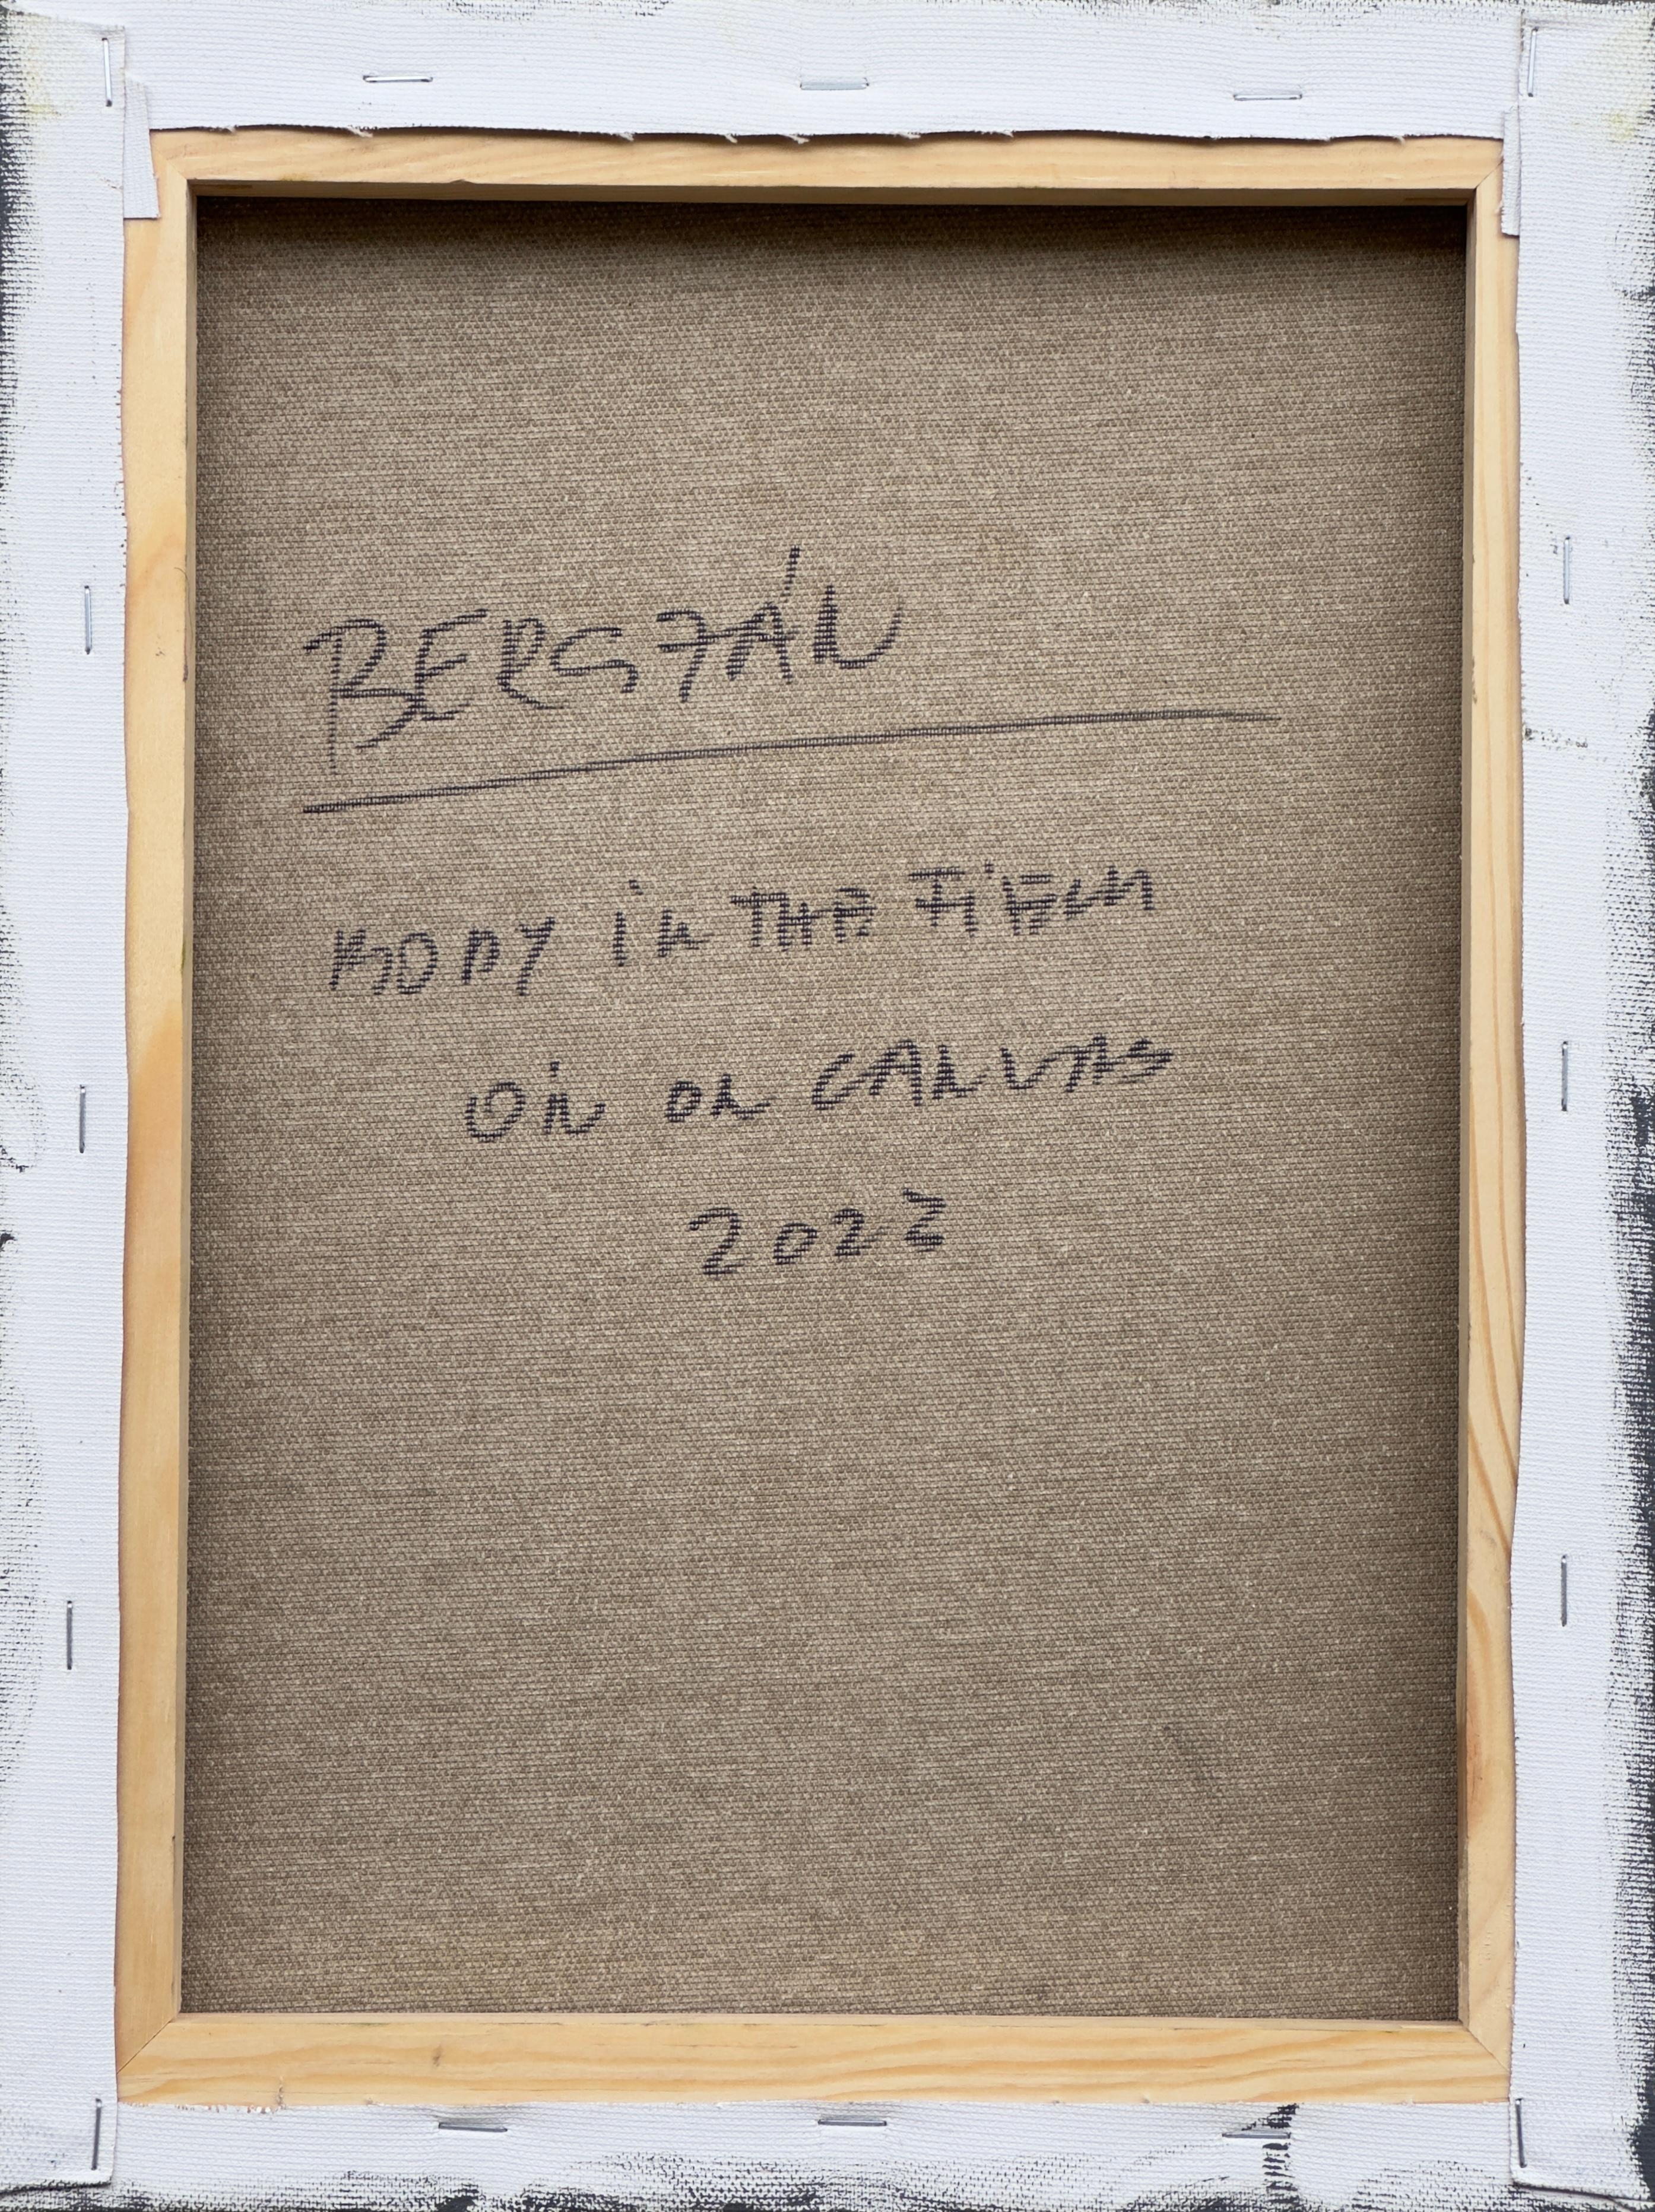 BERGTÁN
BODY in THE FiELD
Oil on CANVAS
2022